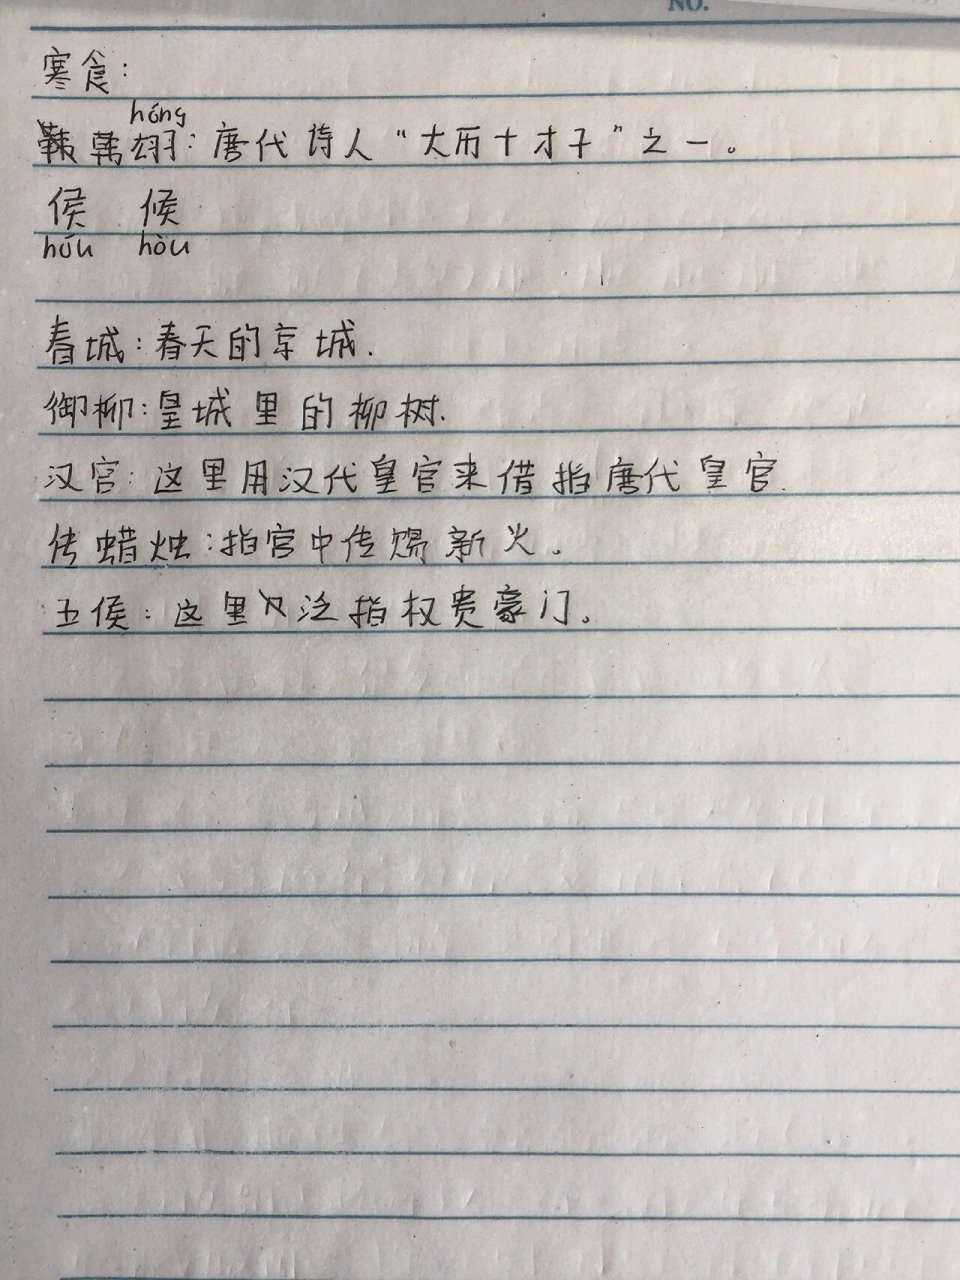 NO.
寒食:
hóng
韩翃:唐代诗人“大历十才子”之一。
侯 候
hóu hòu
春城:春天的京城.
御柳:皇城里的柳树.
汉宫:这里用汉代皇宫来借指唐代皇宫.
传蜡烛:指宫中传赐新火。
五侯:这里泛指权贵豪门。